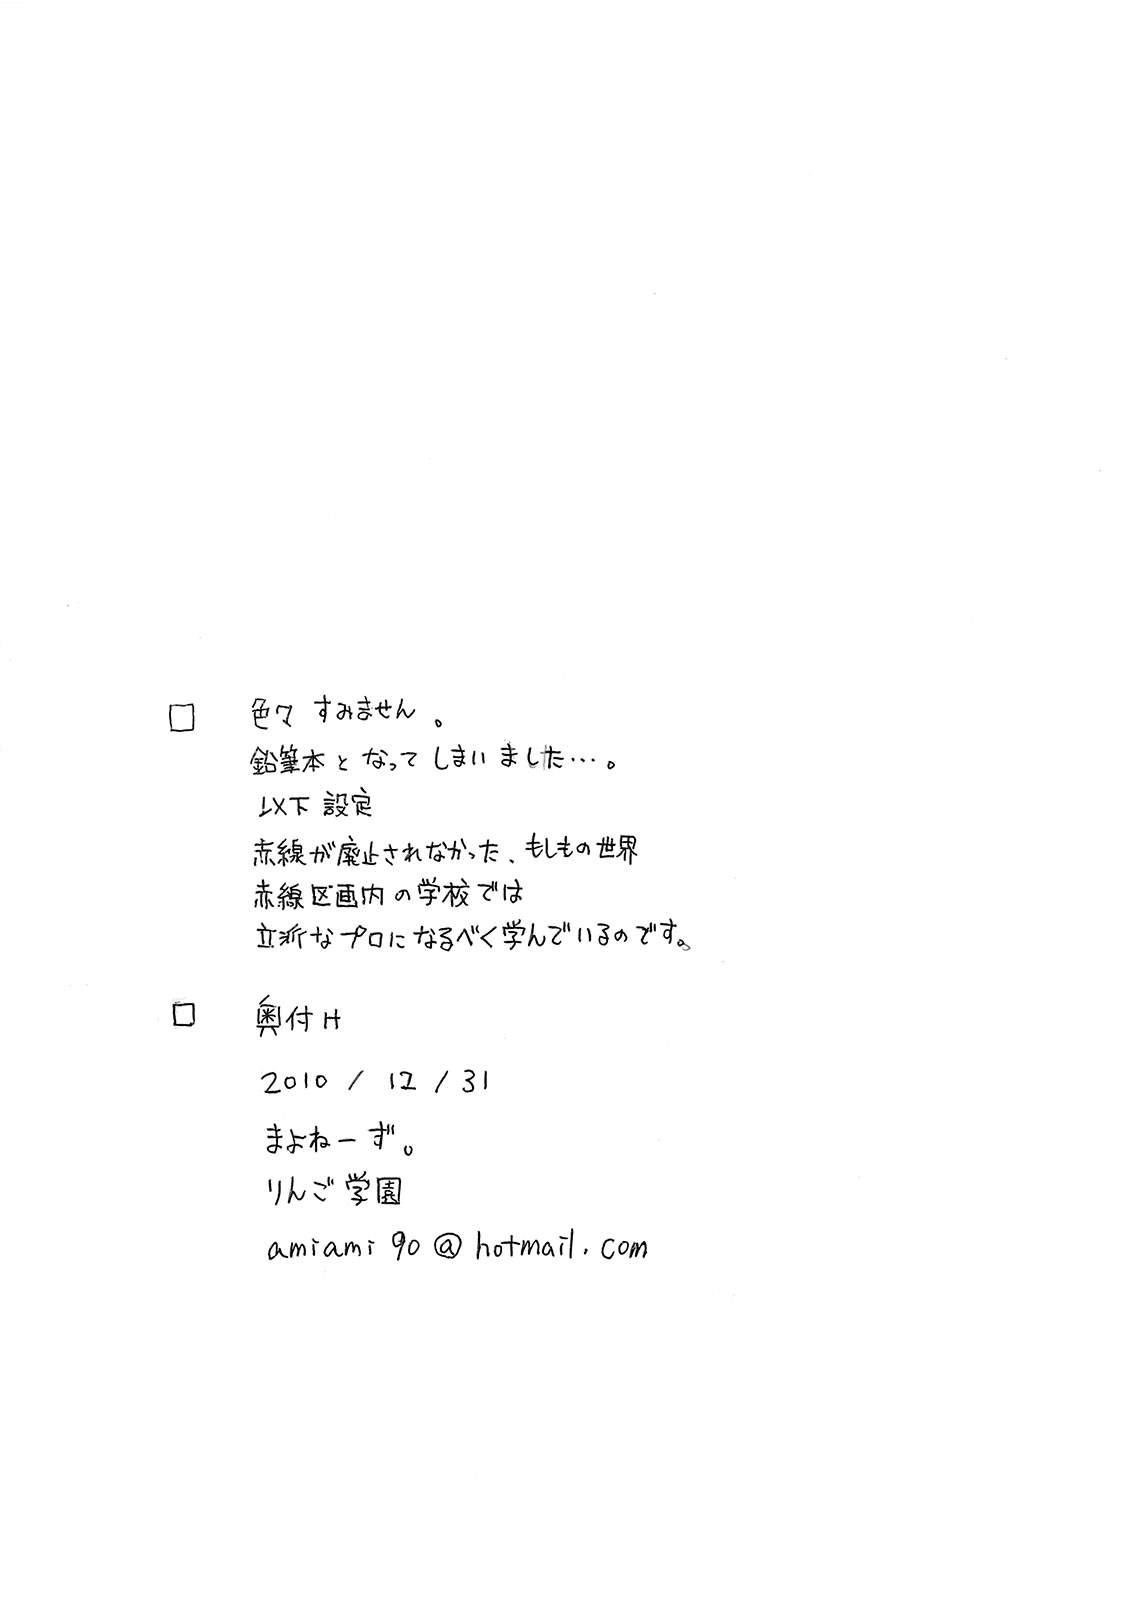 □ 色々すみません。
鉛筆本となってしまいました…。
以下設定
赤線が廃止されなかった、もしもの世界
赤線区画内の学校では
立派なプロになるべく学んでいるのです。
□ 奥付H
2010 / 12 / 31
まよねーず。
りんご学園
amiami90@hotmail.com